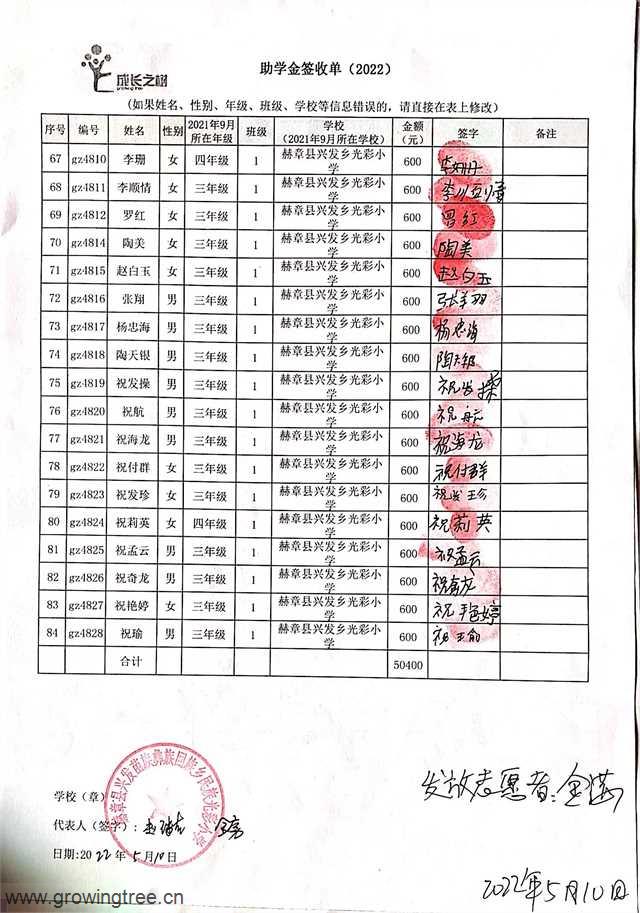 成长之树
助学金签收单（2022）
(如果姓名、性别、年级、班级、学校等信息错误的，请直接在表上修改)
序号 编号 姓名 性别 2021年9月所在年级 班级 学校（2021年9月所在学校） 金额（元） 签字 备注
67 gz4810 李珊 女 四年级 1 赫章县兴发乡光彩小学 600 李姗
68 gz4811 李顺情 女 三年级 1 赫章县兴发乡光彩小学 600 李顺情
69 gz4812 罗红 女 三年级 1 赫章县兴发乡光彩小学 600 罗红
70 gz4814 陶美 女 三年级 1 赫章县兴发乡光彩小学 600 陶美
71 gz4815 赵白玉 女 三年级 1 赫章县兴发乡光彩小学 600 赵白玉
72 gz4816 张翔 男 三年级 1 赫章县兴发乡光彩小学 600 张翔
73 gz4817 杨忠海 男 三年级 1 赫章县兴发乡光彩小学 600 杨忠海
74 gz4818 陶天银 男 三年级 1 赫章县兴发乡光彩小学 600 陶天银
75 gz4819 祝发操 男 三年级 1 赫章县兴发乡光彩小学 600 祝发操
76 gz4820 祝航 男 三年级 1 赫章县兴发乡光彩小学 600 祝航
77 gz4821 祝海龙 男 三年级 1 赫章县兴发乡光彩小学 600 祝海龙
78 gz4822 祝付群 女 三年级 1 赫章县兴发乡光彩小学 600 祝付群
79 gz4823 祝发珍 女 三年级 1 赫章县兴发乡光彩小学 600 祝发珍
80 gz4824 祝莉英 女 四年级 1 赫章县兴发乡光彩小学 600 祝莉英
81 gz4825 祝孟云 男 三年级 1 赫章县兴发乡光彩小学 600 祝孟云
82 gz4826 祝奇龙 男 三年级 1 赫章县兴发乡光彩小学 600 祝奇龙
83 gz4827 祝艳婷 女 三年级 1 赫章县兴发乡光彩小学 600 祝艳婷
84 gz4828 祝瑜 男 三年级 1 赫章县兴发乡光彩小学 600 祝瑜
合计 50400
赫章县兴发苗族彝族回族乡民族光彩小学
发放志愿者：金
学校（章）
代表人（签字）：
日期:2022年5月10日
2022年5月10日
www.growingtree.cn